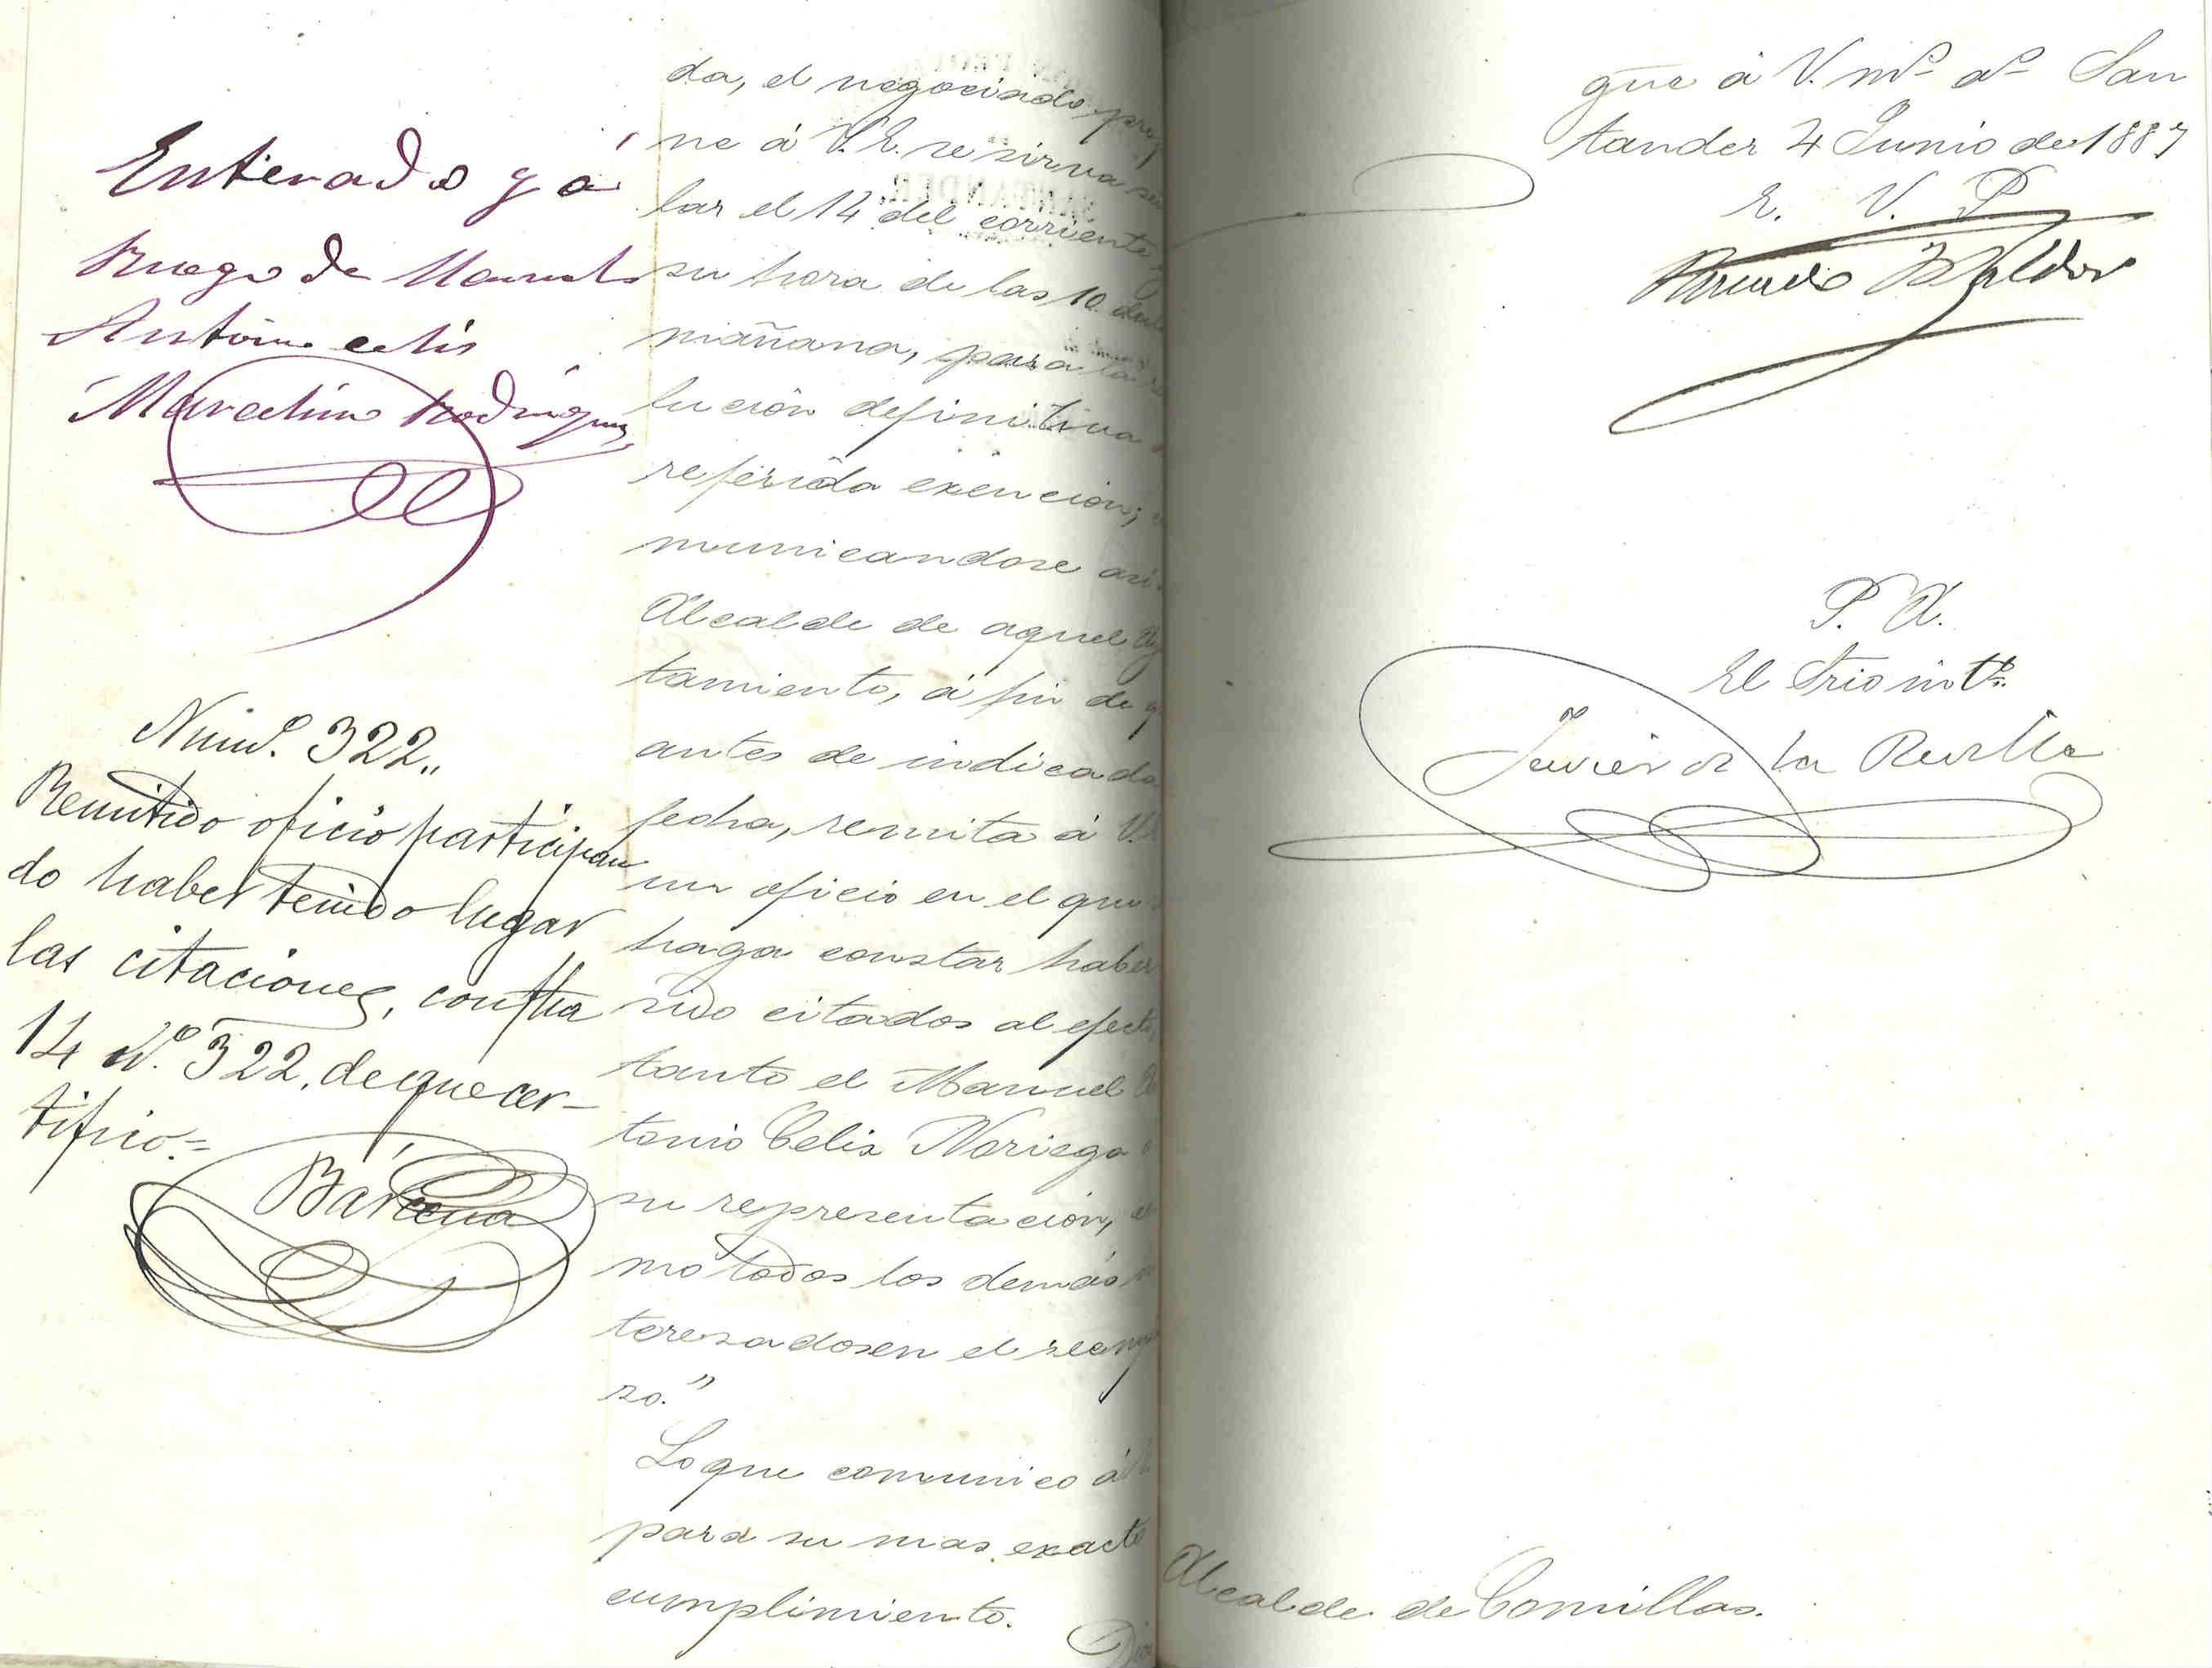 Enterado y á
Ruego de Manuel
Antonio celis
Marcelino Rodriguez
Núm.º 322,,
Remitido oficio participan
do haber tenido lugar
las citaciones, con fha
14 N.º 322, de que cer-
tifico.=
Bárcena
da, el negociado
ne á V.E. se sirva
lar el 14 del corriente
su hora de las 10 de la
mañana, para la
lución definitiva
referida exención;
municandose asi
Alcalde de aquel
tamiento, á fin de
antes de indicada
fecha, remita á V.
un oficio en el que
haga constar haber
sido citados al efecto,
tanto el Manuel
tonio Celis Noriega
su representación,
mo todos los demás
teresados en el reemp
zo."
Lo que comunico á
para su mas exacto
cumplimiento.
Dios
gue á V. m.s a.s San
tander 4 Junio de 1887
E. V. P.
P. A.
El Srio int.º
Javier de la Revilla
Alcalde de Comillas.